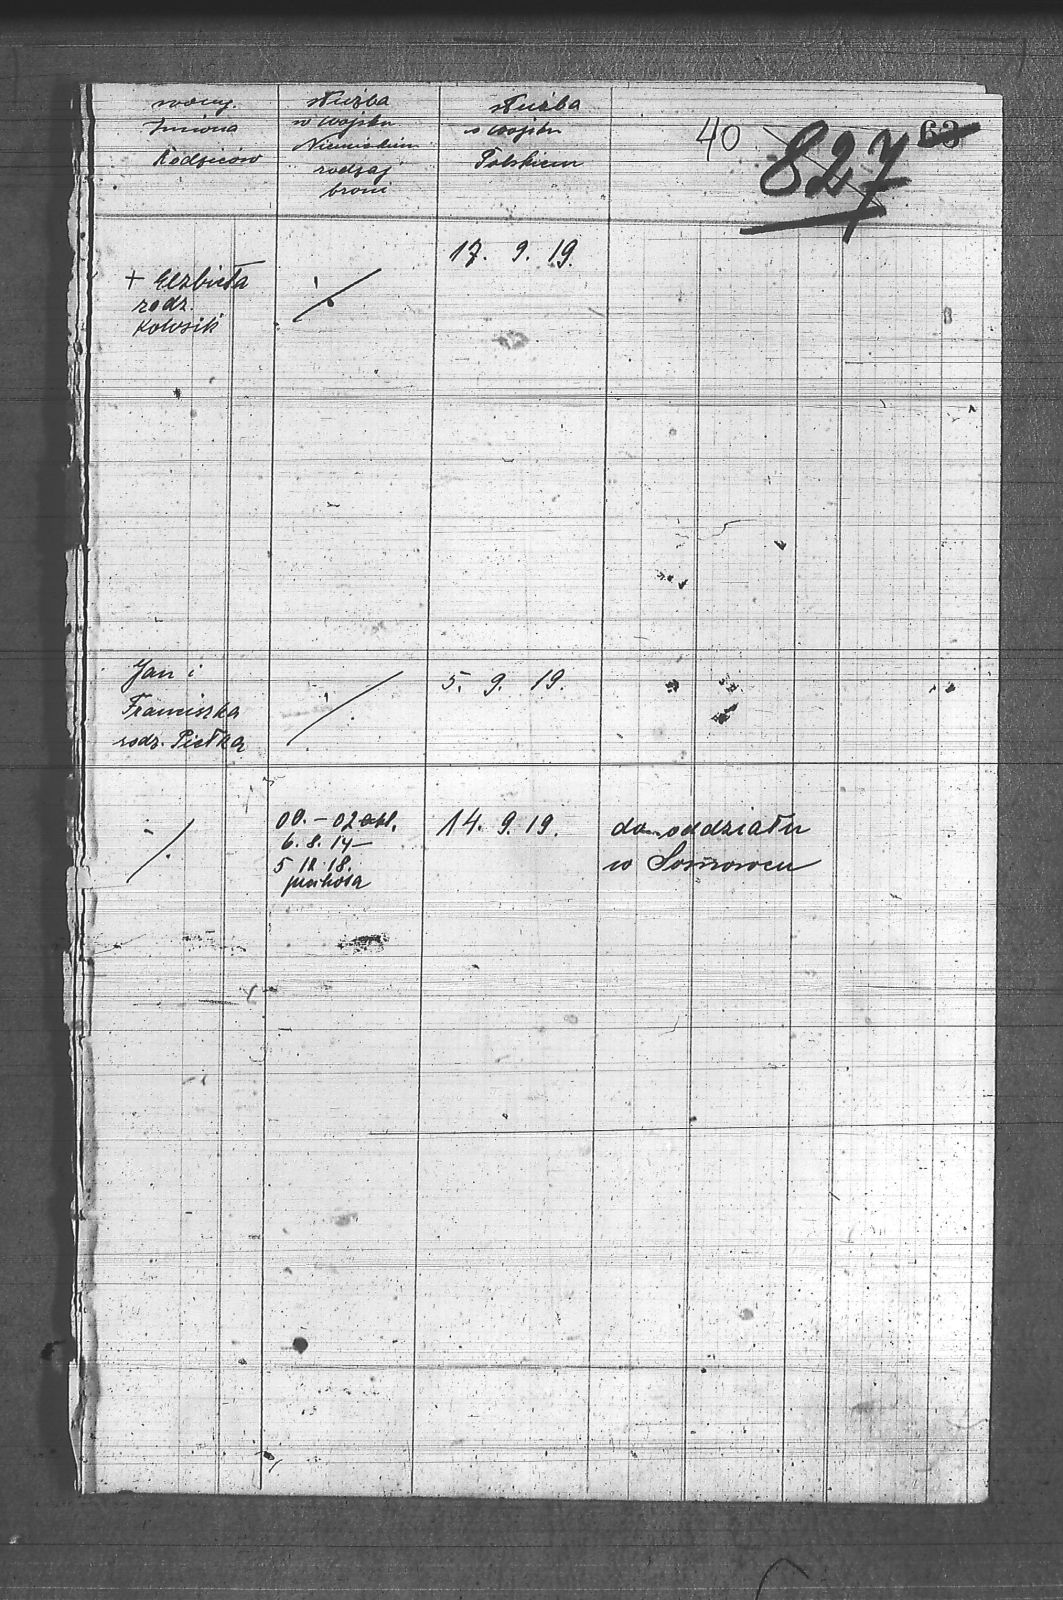 Imiona
Rodziców
służba
w wojsku
Niemieckim
rodzaj
broni
służba
w wojsku
Polskiem
40
827
63
+ Elzbieta
rodz.
Kolosik
17. 9. 19.
Jan i
Franciszka
rodz. Pietka
5. 9. 19.
00. – 02
6. 8. 14 –
5 18.
piechota
14. 9. 19.
do oddziału
w Sosnowcu